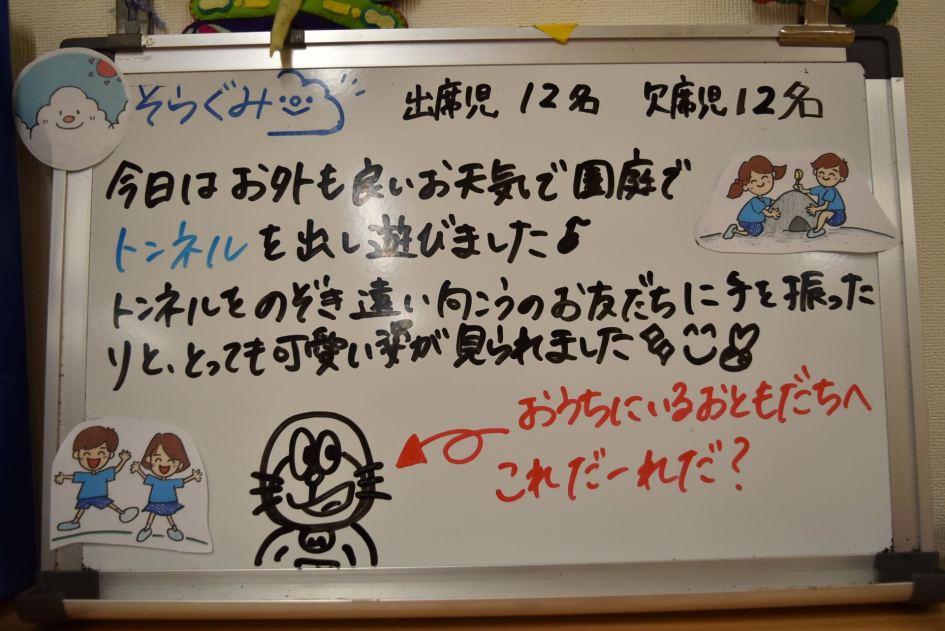 そらぐみ 出席児 12名 欠席児 12名
今日はお外も良いお天気で園庭で
トンネルを出し遊びました♪
トンネルをのぞき遠い向こうのお友だちに手を振った
りと、とっても可愛い姿が見られました
おうちにいるおともだちへ
これだーれだ?